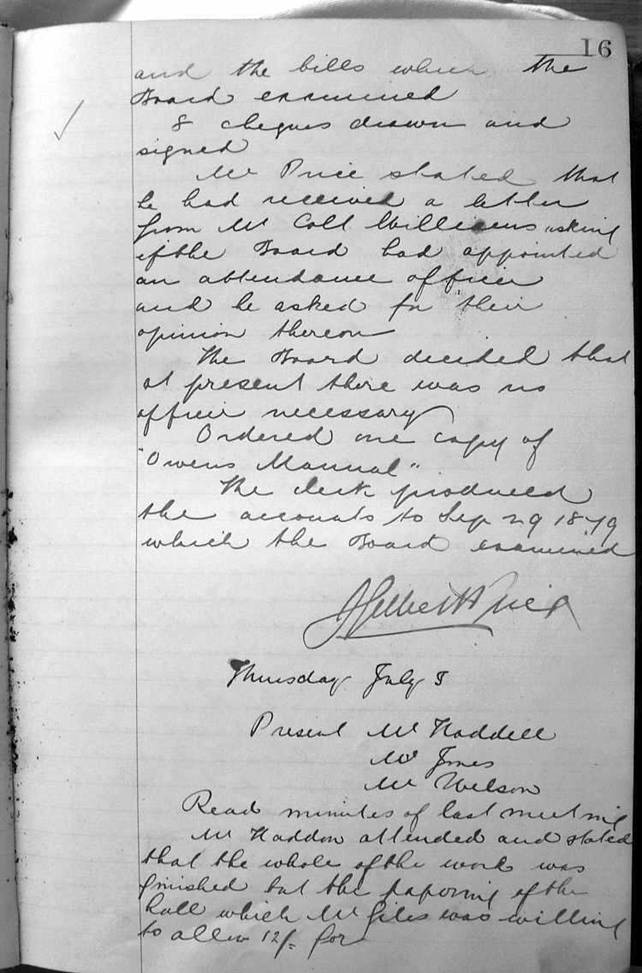 16
and the bills which the
Board examined
8 cheques drawn and
signed
Mr Price stated that
he had received a letter
from Mr Coll Williams asking
if the Board had appointed
an attendance officer
and he asked for their
opinion thereon
The Board decided that
at present there was no
officer necessary
Ordered one copy of
"Owens Manual"
The clerk produced
the accounts to Sep 29 1879
which the Board examined
Gilbert Price
Thursday July 8
Present Mr Haddell
Mr Jones
Mr Wilson
Read minutes of last meeting
Mr Haddon attended and stated
that the whole of the work was
finished but the papering of the
hall which Mr Giles was willing
to allow 12/- for